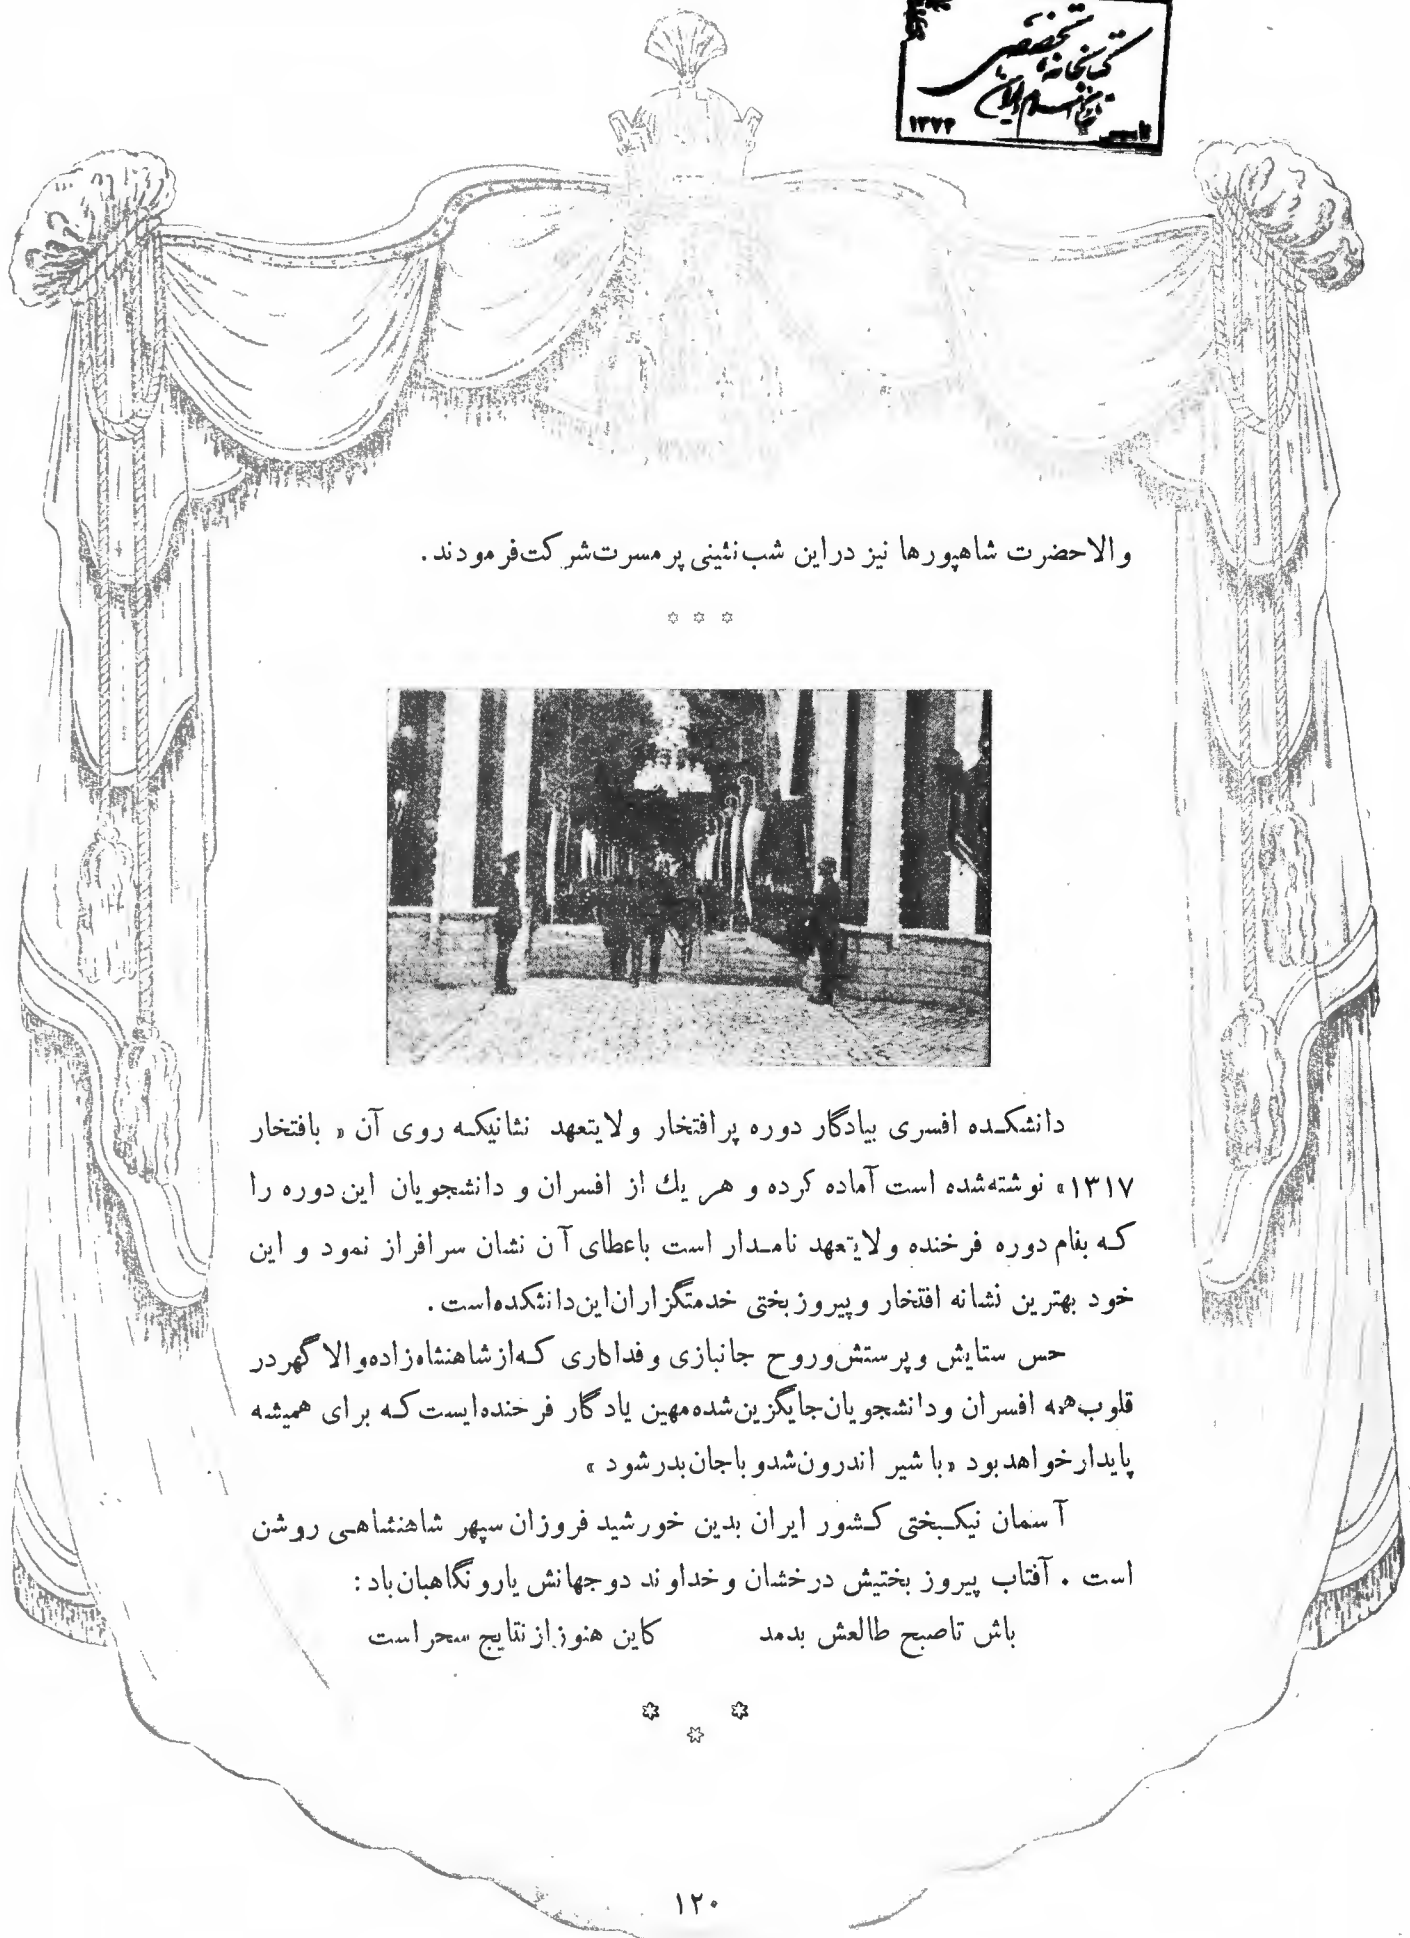 کتابخانه تخصصی
تاریخ اسلام و ایران
تاسیس ۱۳۷۴
والاحضرت شاهپورها نیز دراین شب نشینی پر مسرت شرکت فرمودند.
دانشکده افسری بیادگار دوره پر افتخار ولایتعهد نشانیکه روی آن «بافتخار
۱۳۱۷» نوشته شده است آماده کرده و هر یك از افسران و دانشجویان این دوره را
که بنام دوره فرخنده ولایتعهد نامدار است باعطای آن نشان سرافراز نمود و این
خود بهترین نشانه افتخار و پیروز بختی خدمتگزاران این دانشکده است.
حس ستایش و پرستش و روح جانبازی و فداکاری که از شاهنشاه زاده والا گهر در
قلوب همه افسران و دانشجویان جایگزین شده مهین یادگار فرخنده ایست که برای همیشه
پایدار خواهد بود «با شیر اندرون شد و با جان بدر شود»
آسمان نیکبختی کشور ایران بدین خورشید فروزان سپهر شاهنشاهی روشن
است. آفتاب پیروز بختیش درخشان و خداوند دو جهانش یار و نگاهبان باد:
باش تا صبح طالعش بدمد کاین هنوز از نتایج سحر است
۱۲۰